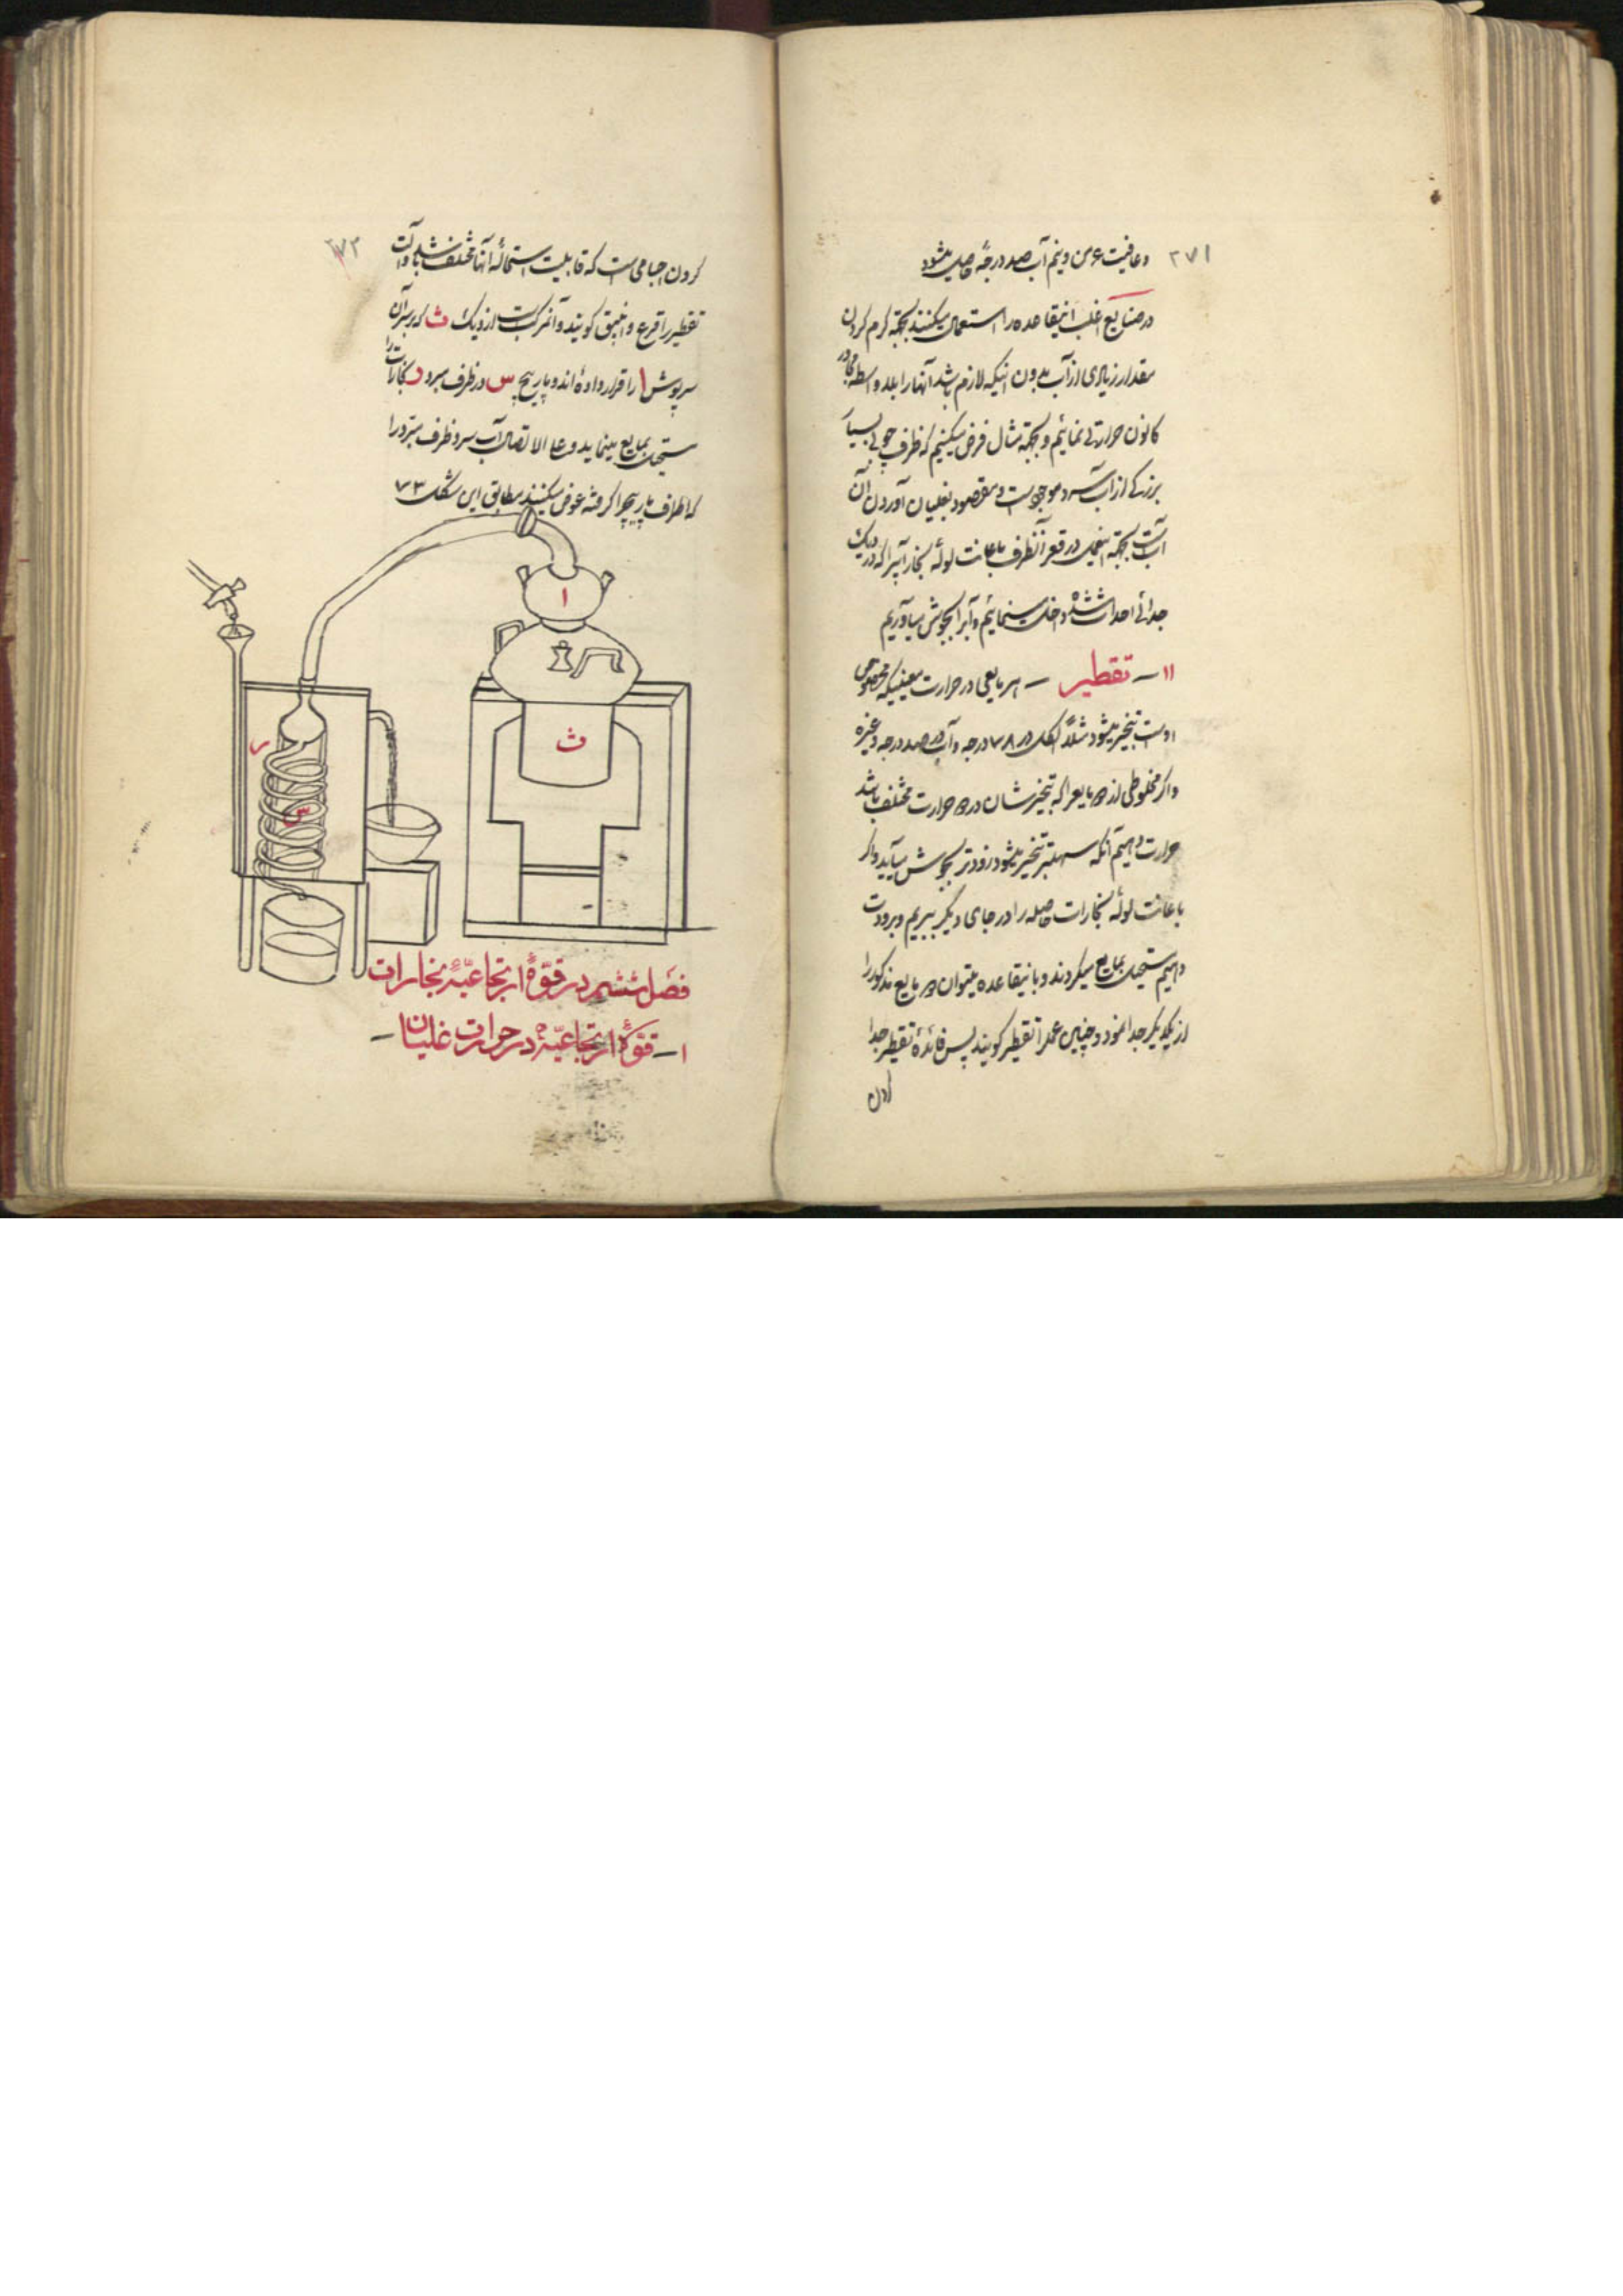 ۲۷۱
و عاقبت ۶ من و نیم آب صد درجهٔ حاصل میشود
در صنایع اغلب اینقاعده را استعمال میکنند بجهته گرم کردن
مقدار زیادی از آب بدون اینکه لازم باشد آنها را بلاواسطه مجاور
کانون حرارتی نمائیم و بجهته مثال فرض میکنیم که ظرف چوبی بسیار
بزرگی از آب سرد موجود است و مقصود بغلیان آوردن آن
آب است بجهته اینعمل در قعر آنظرف باعانت لولهٔ بخار آبیرا که در دیک
جدائی احداث شده داخل مینمائیم و آبرا بجوش میآوریم
۱۱ – تقطیر – هر مایعی در حرارت معینیکه مخصوص
اوست تبخیر میشود مثلاً الکل در ۷۸ درجه و آب در صد درجه و غیره
و اگر مخلوطی از دو مایعرا که تبخیرشان در دو حرارت مختلف باشد
حرارت دهیم آنکه سهلتر تبخیر میشود زودتر بجوش میآید و اگر
باعانت لولهٔ بخارات حاصله را در جای دیگر ببریم و برودت
دهیم مستحیل بمایع میگردند و باینقاعده میتوان دو مایع مذکور را
از یکدیگر جدا نمود و چنین عمل را تقطیر گویند پس فائدهٔ تقطیر جدا
کردن
۲۷۲
کردن اجسامی است که قابلیت استحالهٔ آنها مختلف باشد و آلت
تقطیر را قرع و انبیق گویند و آن مرکبست از دیک ث که بر سر آن
سرپوش ا را قرار داده‌اند و مارپیچ س در ظرف مبرد ر بخارات را
مستحیل بمایع مینماید و علی الاتصال آب سرد ظرف مبرد را
که اطراف مارپیچ را گرفته عوض میکنند مطابق این شکل ۷۳
ا
ث
ر
س
فصل ششم در قوّهٔ ارتجاعیّهٔ بخارات
۱ – قوّهٔ ارتجاعیّهٔ در حرارت غلیان –